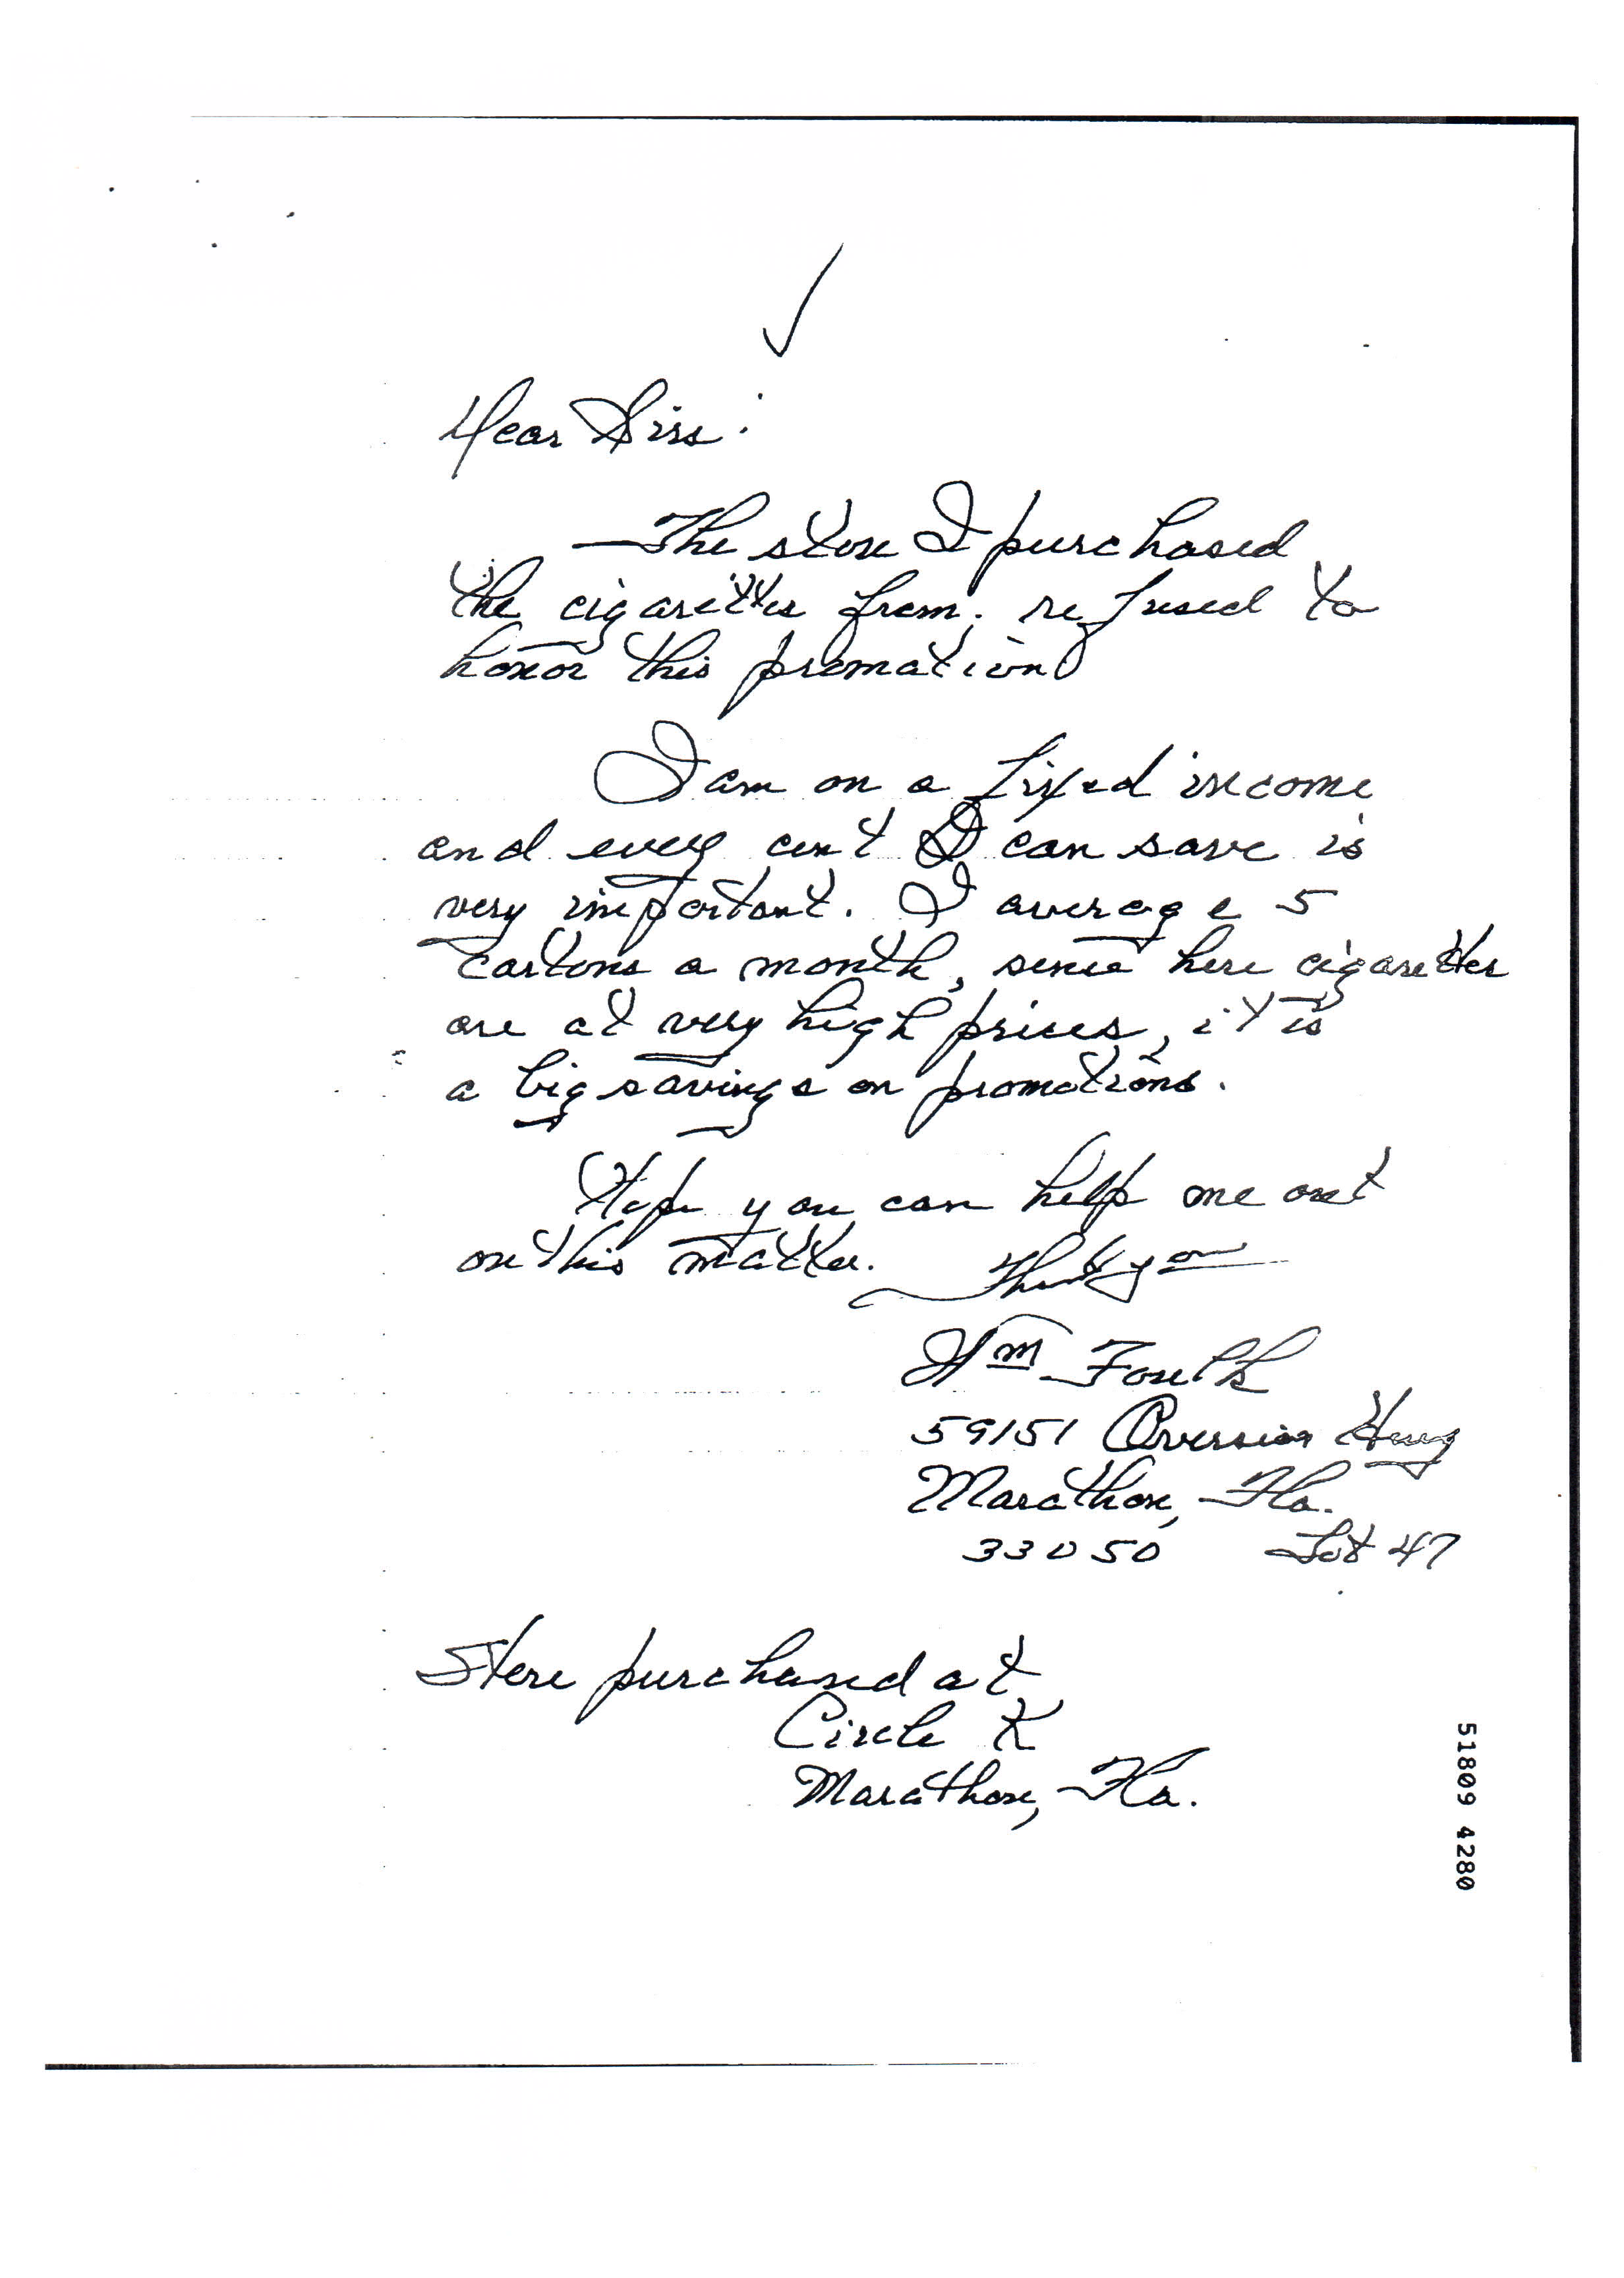 Dear Sirs:
The store I purchased
the cigarettes from, refused to
honor this promotion
I am on a fixed income
and every cent I can save is
very important. I average 5
cartons a month, since here cigarettes
are at very high prices, it is
a big savings on promotions.
Hope you can help me out
on this matter. Thank you
Wm Foulk
59151 Overseas Hwy
Marathon, Fla.
33050 Lot 47
Store purchased at
Circle K
Marathon, Fla.
51809 4280